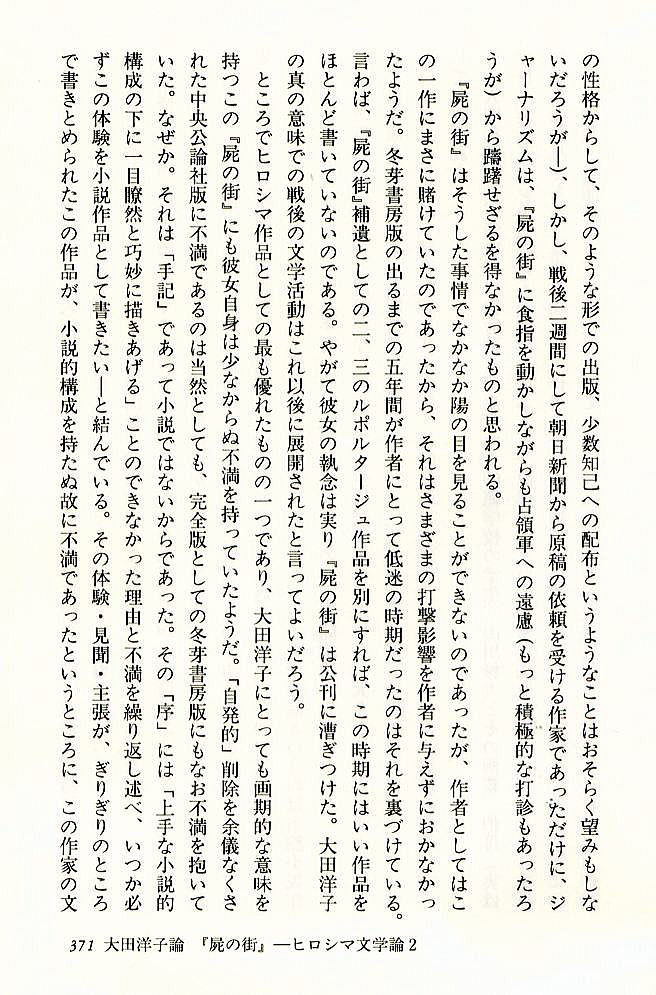 の性格からして、そのような形での出版、少数知己への配布というようなことはおそらく望みもしな
いだろうが―)、しかし、戦後二週間にして朝日新聞から原稿の依頼を受ける作家であっただけに、ジ
ャーナリズムは、『屍の街』に食指を動かしながらも占領軍への遠慮(もっと積極的な打診もあったろ
うが)から躊躇せざるを得なかったものと思われる。
『屍の街』はそうした事情でなかなか陽の目を見ることができないのであったが、作者としてはこ
の一作にまさに賭けていたのであったから、それはさまざまの打撃影響を作者に与えずにおかなかっ
たようだ。冬芽書房版の出るまでの五年間が作者にとって低迷の時期だったのはそれを裏づけている。
言わば、『屍の街』補遺としての二、三のルポルタージュ作品を別にすれば、この時期にはいい作品を
ほとんど書いていないのである。やがて彼女の執念は実り『屍の街』は公刊に漕ぎつけた。大田洋子
の真の意味での戦後の文学活動はこれ以後に展開されたと言ってよいだろう。
ところでヒロシマ作品としての最も優れたものの一つであり、大田洋子にとっても画期的な意味を
持つこの『屍の街』にも彼女自身は少なからぬ不満を持っていたようだ。「自発的」削除を余儀なくさ
れた中央公論社版に不満であるのは当然としても、完全版としての冬芽書房版にもなお不満を抱いて
いた。なぜか。それは「手記」であって小説ではないからであった。その「序」には「上手な小説的
構成の下に一目瞭然と巧妙に描きあげる」ことのできなかった理由と不満を繰り返し述べ、いつか必
ずこの体験を小説作品として書きたい―と結んでいる。その体験・見聞・主張が、ぎりぎりのところ
で書きとめられたこの作品が、小説的構成を持たぬ故に不満であったというところに、この作家の文
371 大田洋子論 『屍の街』―ヒロシマ文学論2